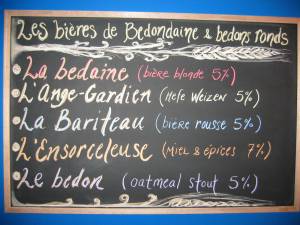 Les bières de Bedondaine & bedons ronds
La bedaine (bière blonde 5%)
L'Ange-Gardien (Hefe Weizen 5%)
La Bariteau (bière rousse 5%)
L'Ensorceleuse (Miel & épices 7%)
Le bedon (oatmeal stout 5%)